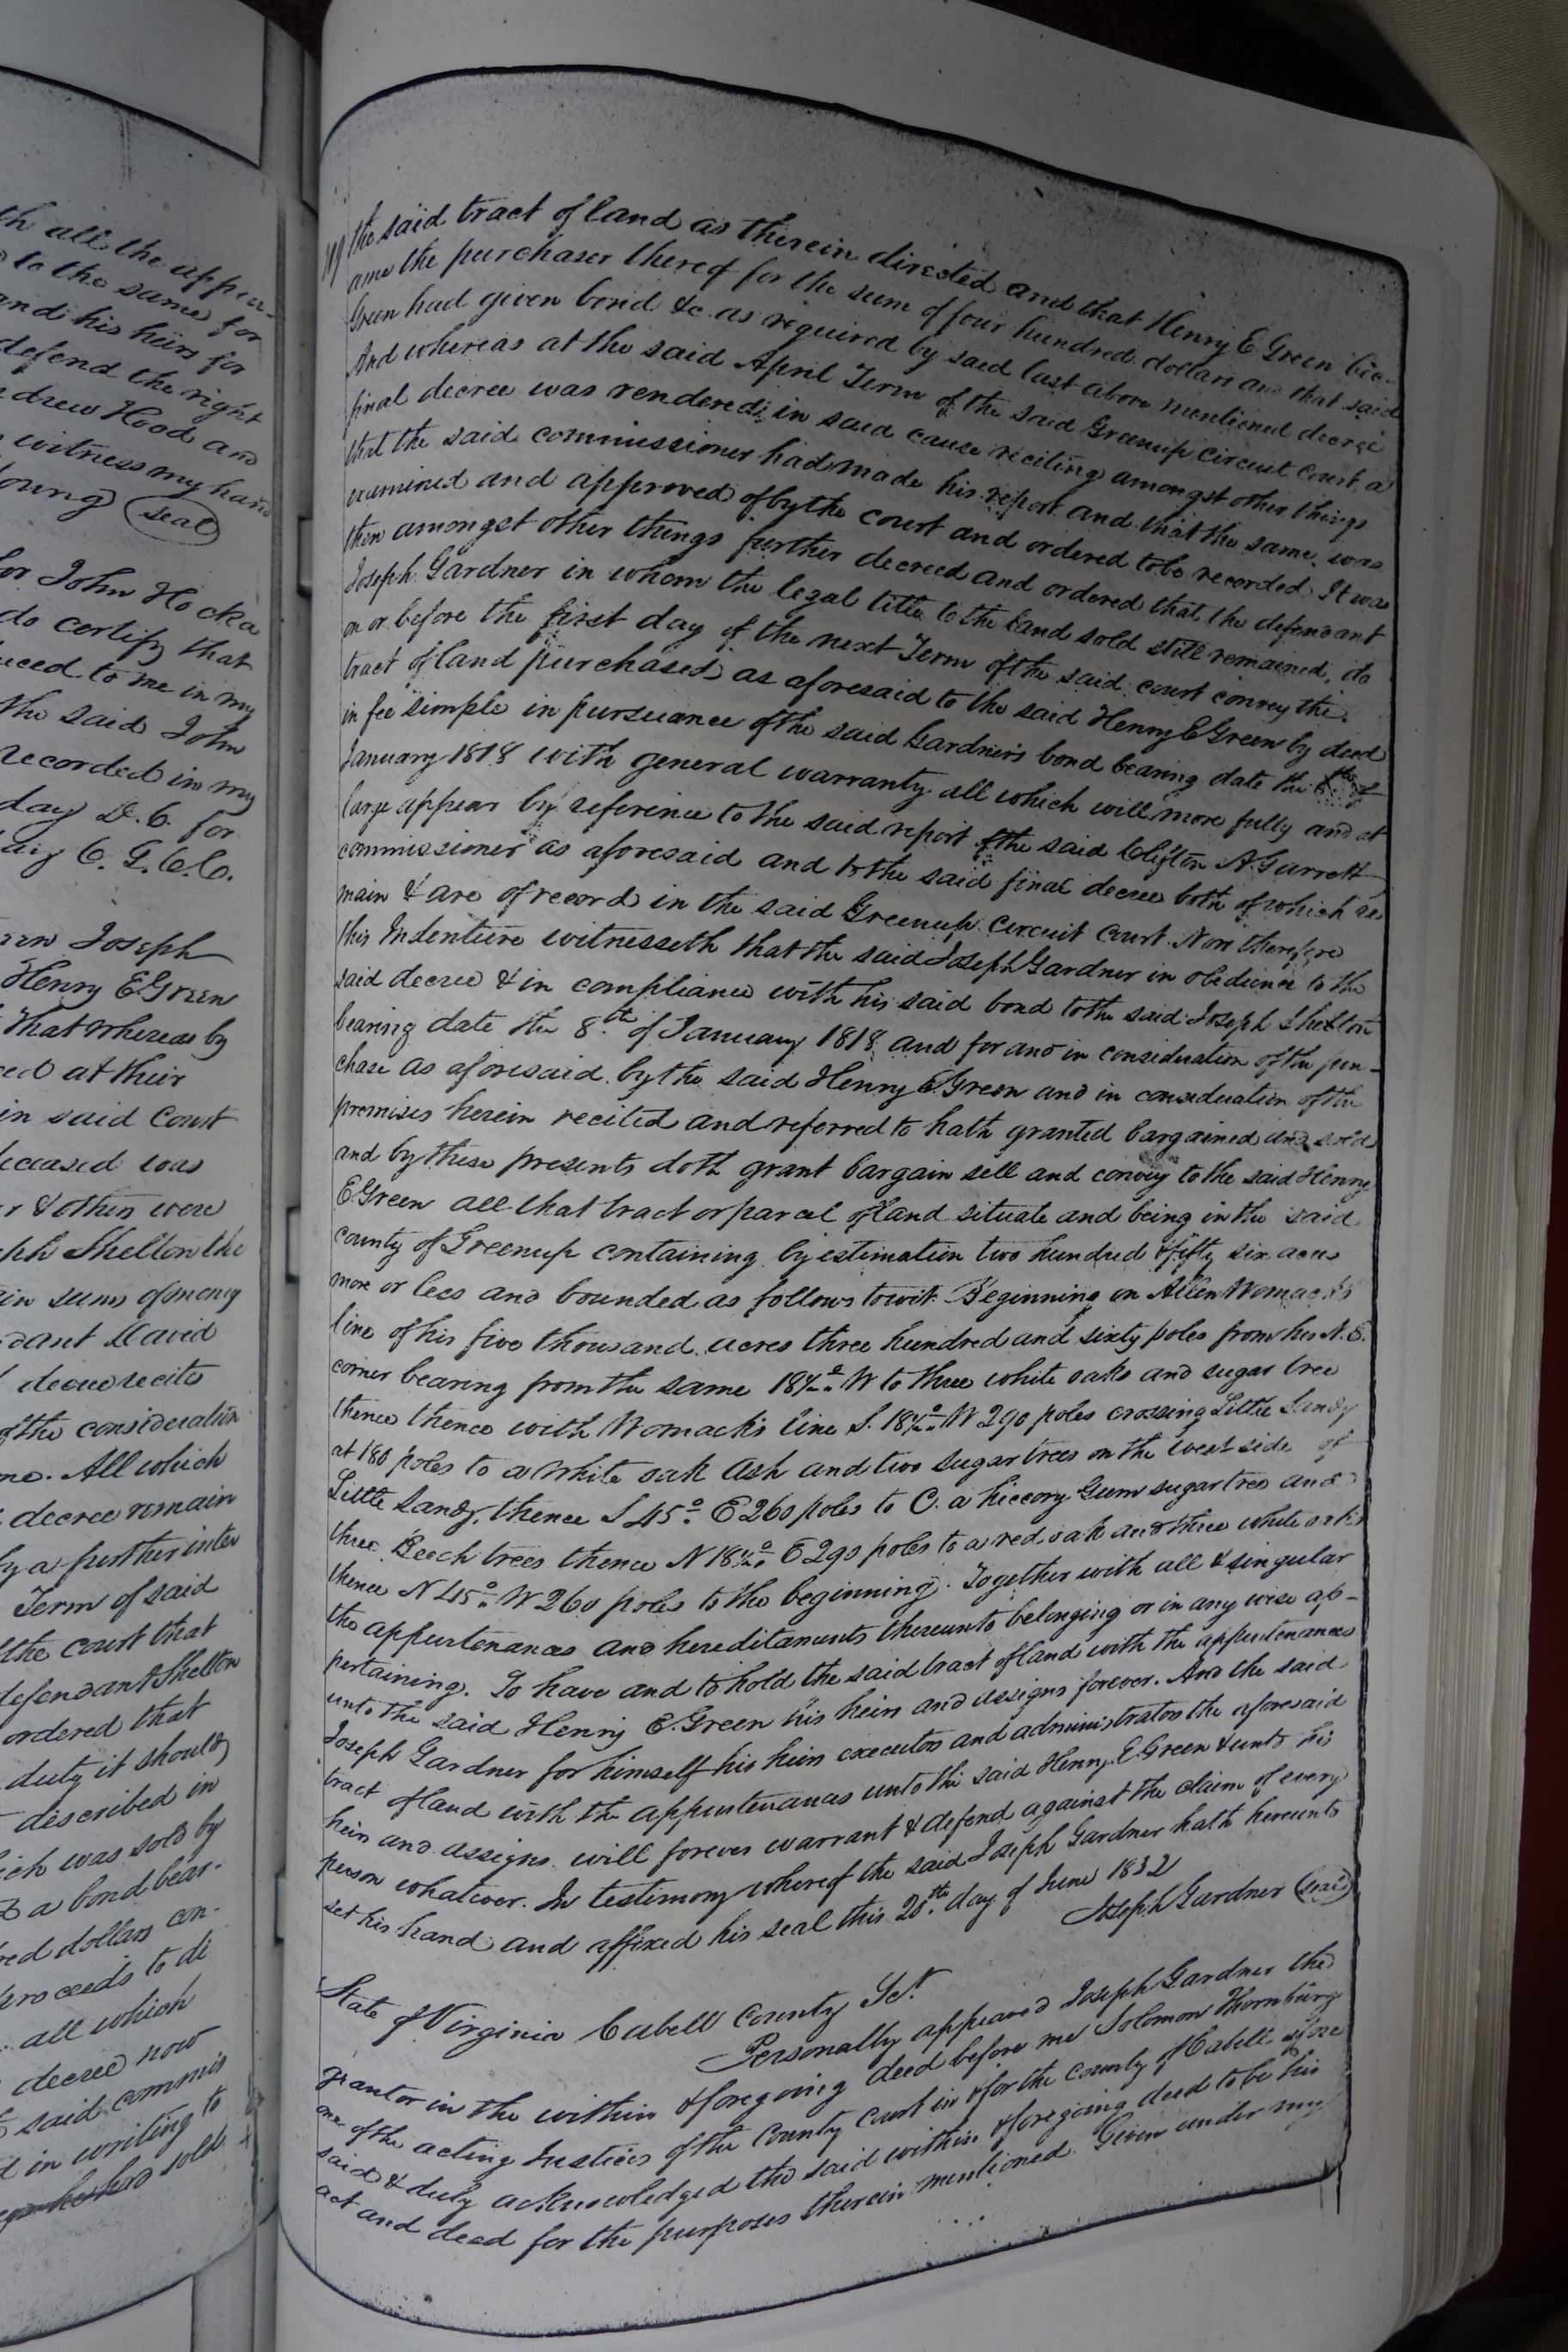 th all the appur-
to the same for
and his heirs for
defend the right
drew Hood and
witness my hand
oung (seal)
for John Hocka
do certify that
uced to me in my
the said John
recorded in my
day D. C. for
C. G. C. C.
Joseph
Henry E Green
That whereas by
ed at their
in said Court
deceased was
r & others were
ph Shelton the
in sums of money
dant David
decree recites
of the consideration
me. All which
decree remain
by a further inter
Term of said
the court that
defendant Shelton
ordered that
duty it should
described in
ich was sold by
a bond bear-
red dollars con-
proceeds to di
all which
decree now
said commis
d in writing to
he had sold
the said tract of land as therein directed and that Henry E Green bec-
ame the purchaser thereof for the sum of four hundred dollars and that said
Green had given bond &c. as required by said last above mentioned decree
And whereas at the said April Term of the said Greenup Circuit Court, a
final decree was rendered in said cause reciting amongst other things
that the said commissioner had made his report and that the same was
examined and approved of by the court and ordered to be recorded. It was
then amongst other things further decreed and ordered that the defendant
Joseph Gardner in whom the legal title to the land sold still remained, do
on or before the first day of the next Term of the said court convey the
tract of land purchased as aforesaid to the said Henry E Green by deed
in fee simple in pursuance of the said Gardner's bond bearing date the 8th of
January 1818 with general warranty all which will more fully and at
large appear by reference to the said report of the said Clifton A. Garrett
commissioner as aforesaid and to the said final decree both of which re
main & are of record in the said Greenup circuit court. Now therefore
this Indenture witnesseth that the said Joseph Gardner in obedience to the
said decree & in compliance with his said bond to the said Joseph Shelton
bearing date the 8th of January 1818 and for and in consideration of the pur-
chase as aforesaid by the said Henry E Green and in consideration of the
premises herein recited and referred to hath granted bargained and sold
and by these presents doth grant bargain sell and convey to the said Henry
E Green all that tract or parcel of land situate and being in the said
county of Greenup containing by estimation two hundred & fifty six acres
more or less and bounded as follows towit: Beginning on Allen Womack's
line of his five thousand acres three hundred and sixty poles from his N. E.
corner bearing from the same 18½° W to three white oaks and sugar tree
thence thence with Womack's line S. 18½° W 290 poles crossing Little Sandy
at 180 poles to a white oak ash and two sugar trees on the west side of
Little Sandy, thence S 45° E 260 poles to C. a hiccory Gum sugar tree and
three Beech trees thence N 18½° E 290 poles to a red oak and three white oaks
thence N 45° W 260 poles to the beginning. Together with all & singular
the appurtenances and hereditaments thereunto belonging or in any wise ap-
pertaining. To have and to hold the said tract of land with the appurtenances
unto the said Henry E. Green his heirs and assigns forever. And the said
Joseph Gardner for himself his heirs executors and administrators the aforesaid
tract of land with the appurtenances unto the said Henry E Green & unto his
heirs and assigns will forever warrant & defend against the claim of every
person whatever. In testimony whereof the said Joseph Gardner hath hereunto
set his hand and affixed his seal this 20th day of June 1832
Joseph Gardner (seal)
State of Virginia Cabell County Sct.
Personally appeared Joseph Gardner the
grantor in the within & foregoing deed before me Solomon Thornburg
one of the acting Justices of the County Court in & for the county of Cabell afore
said & duly acknowledged the said within & foregoing deed to be his
act and deed for the purposes therein mentioned. Given under my